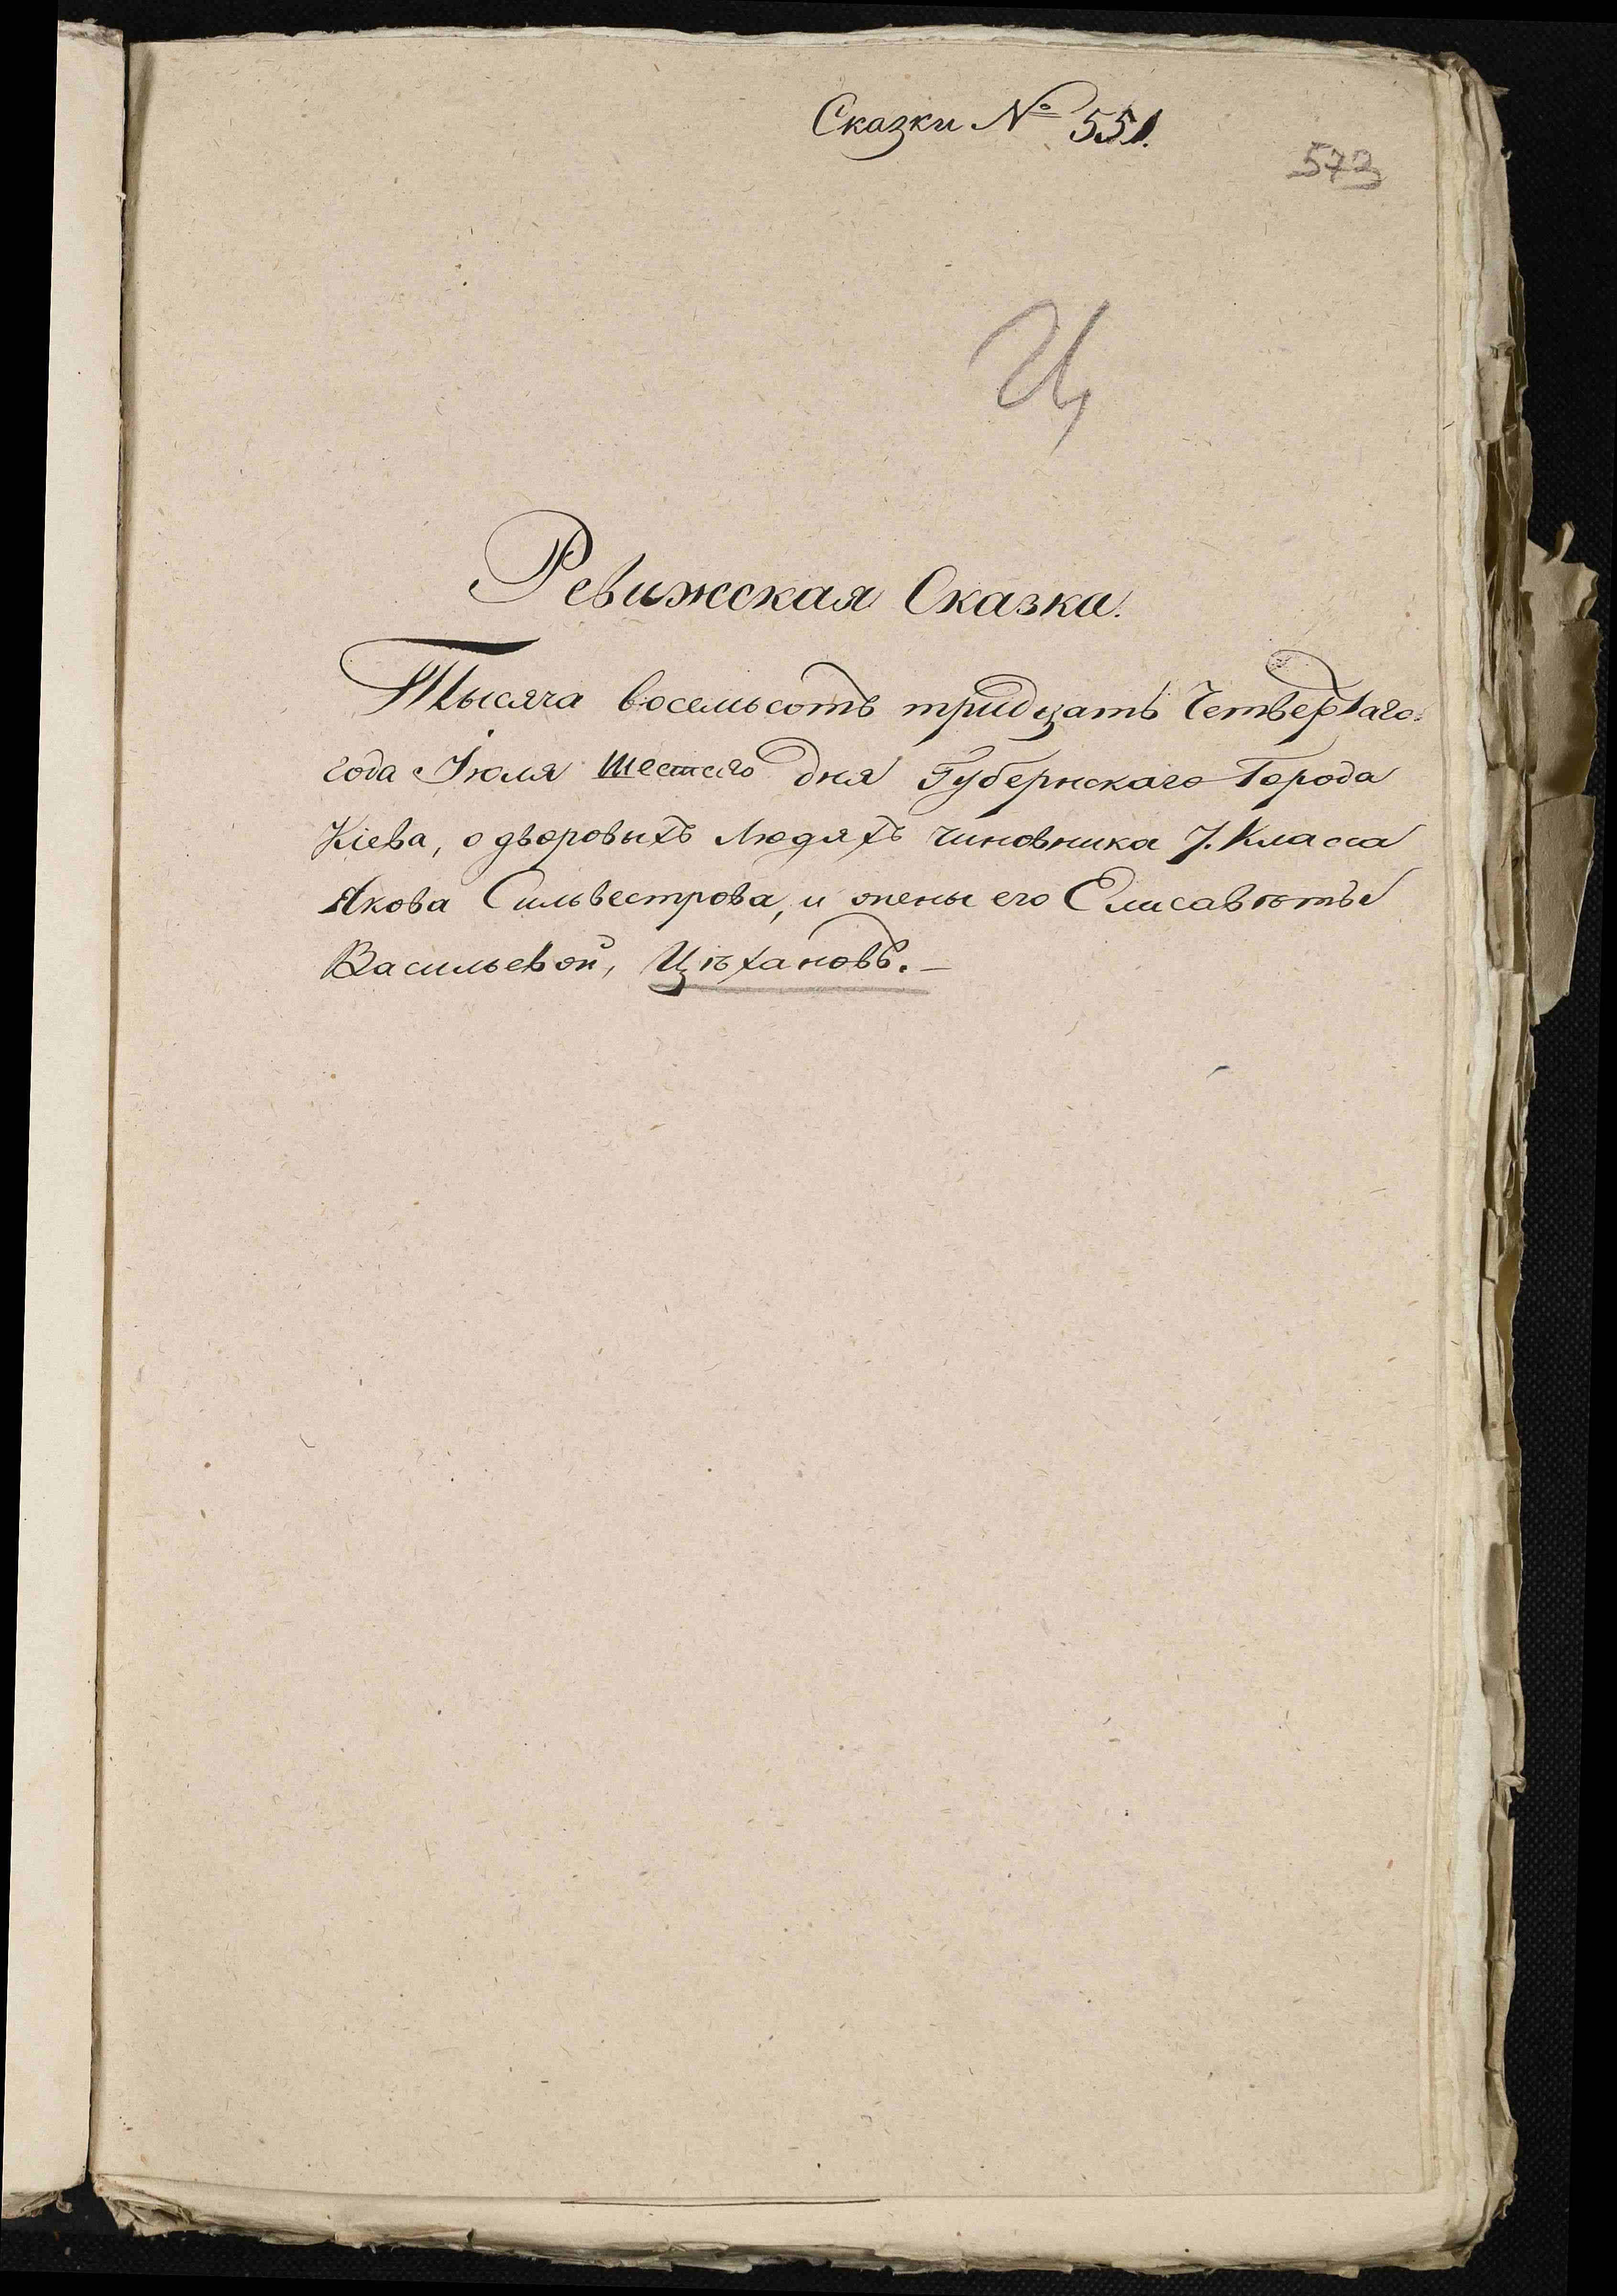 Сказки № 551.
573
Ц
Ревижская Сказка.
Тысяча восемьсотъ тридцать Четвертаго
года Іюля шестаго дня Губернскаго Города
Кіева, о дворовыхъ Людяхъ чиновника 7. Класса
Якова Сильвестрова, и жены его Елисаветы
Васильевой, Цѣхановъ. —